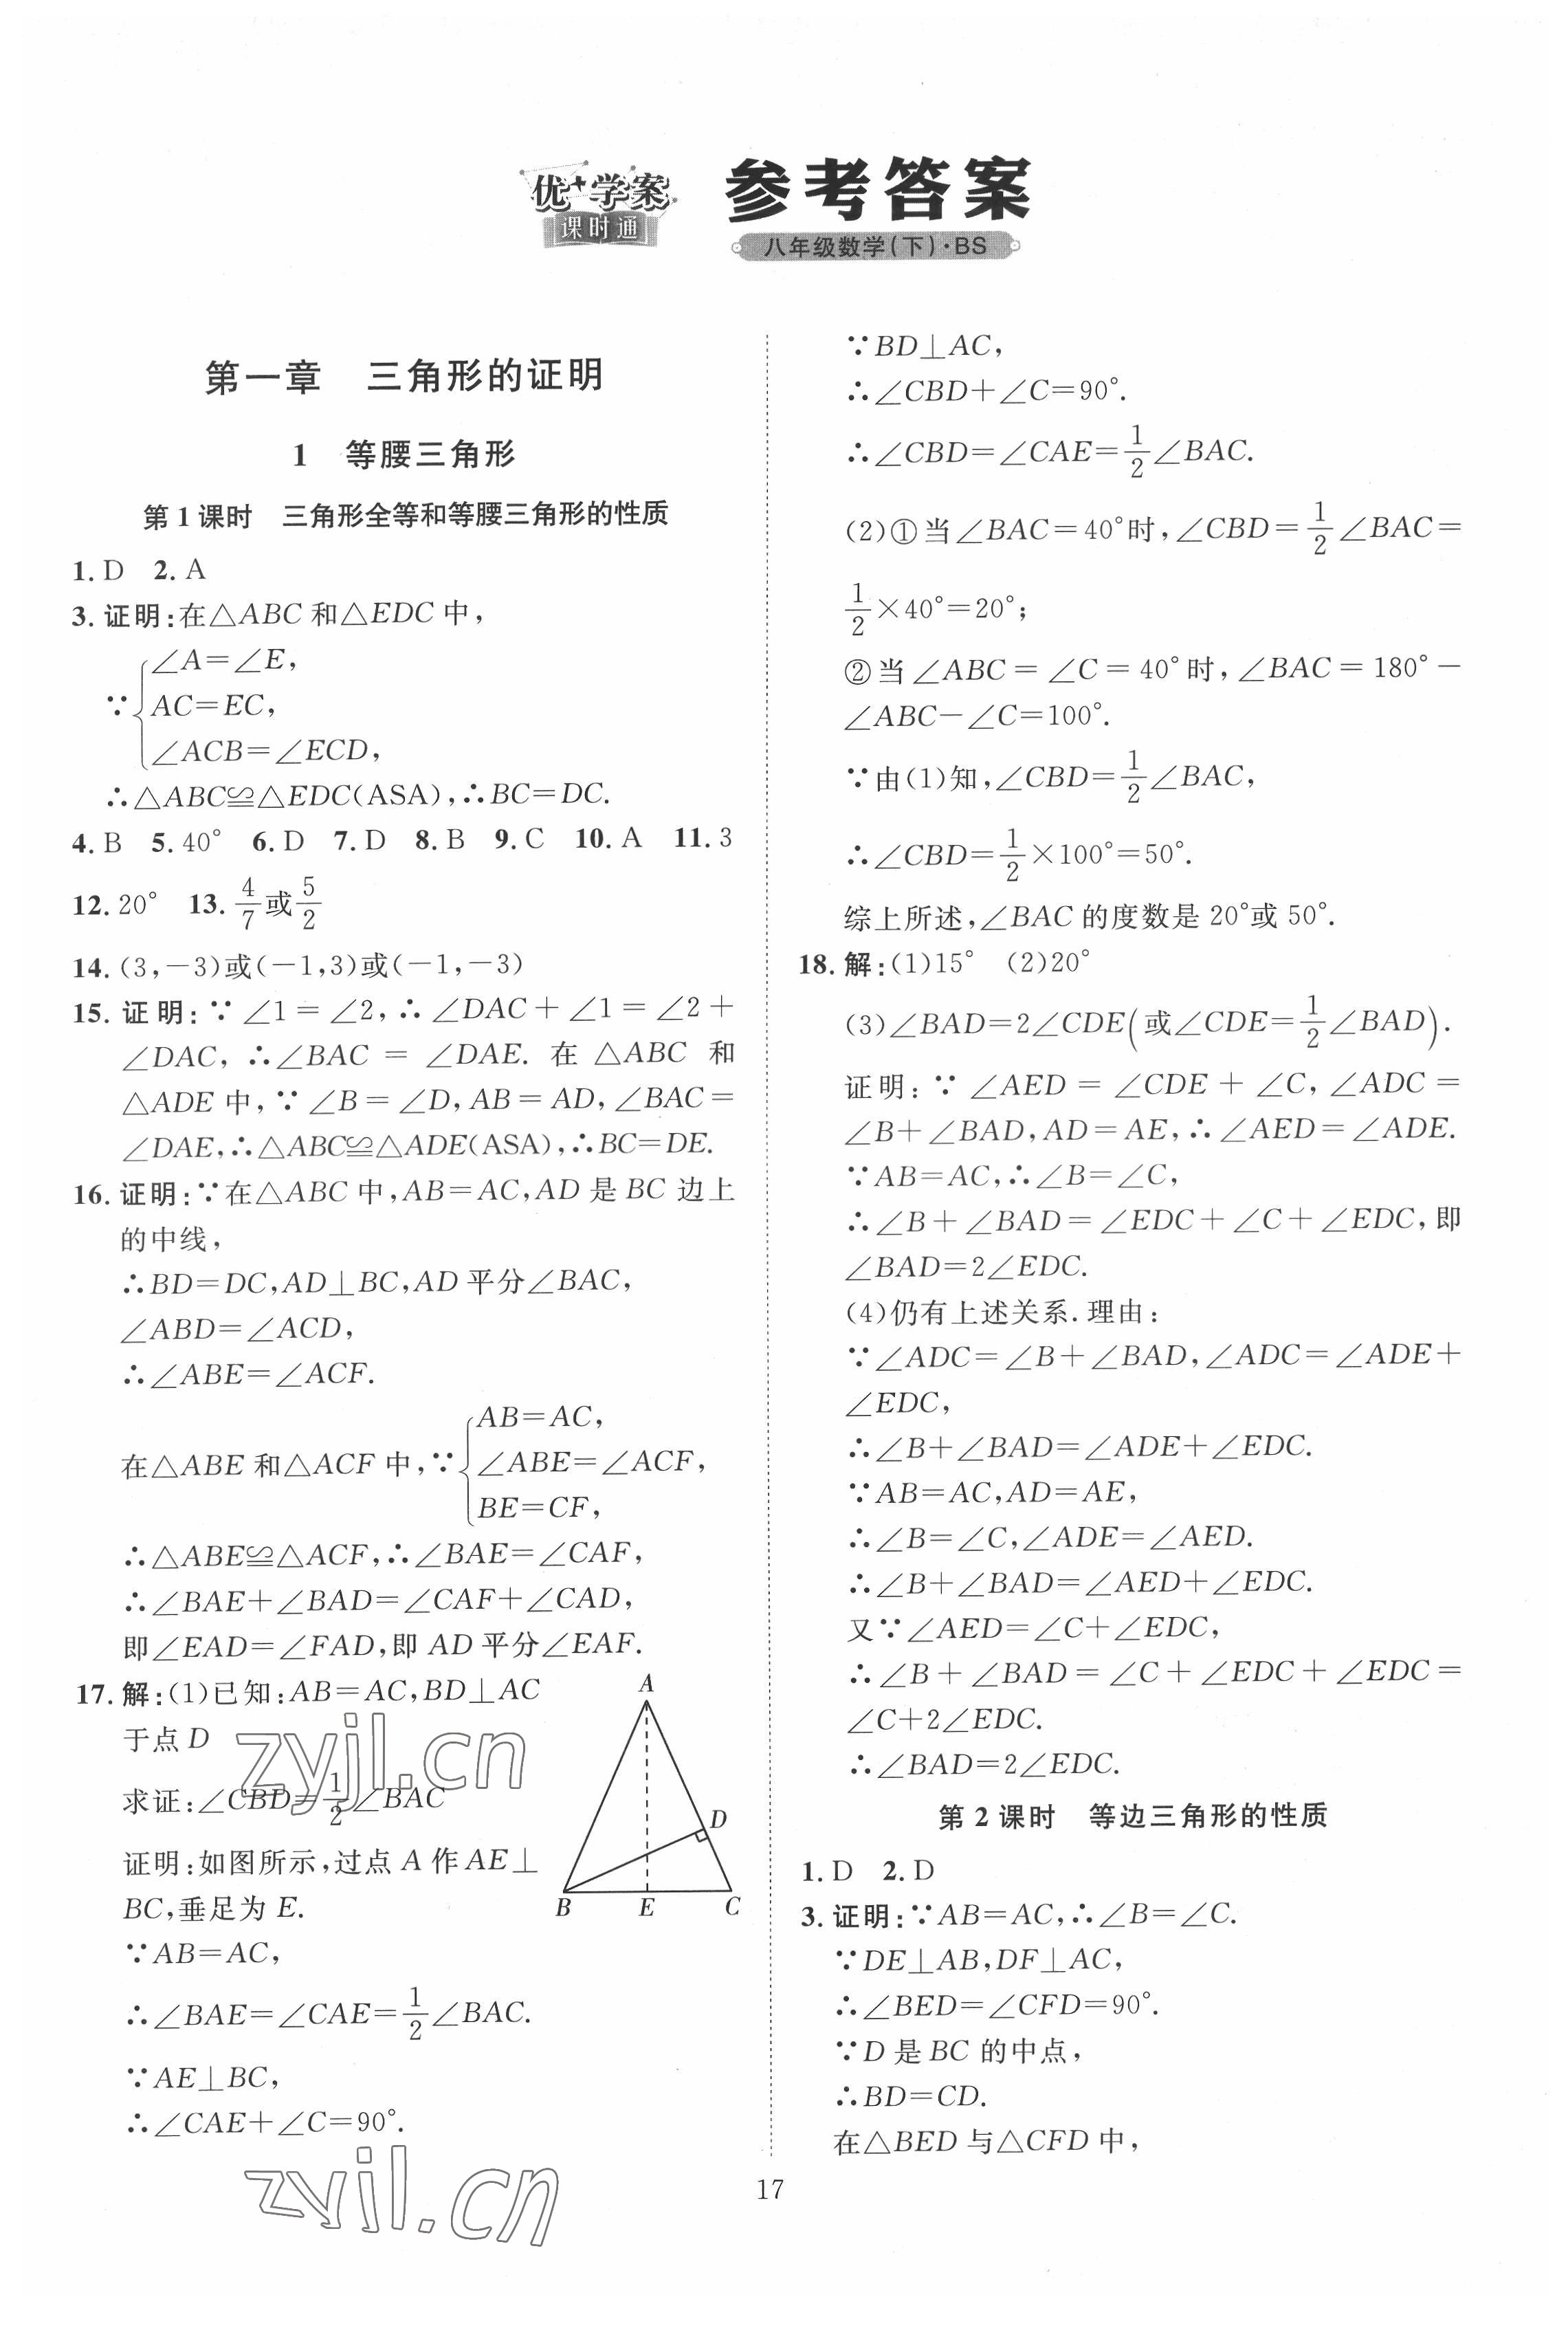 优+学案
课时通
参考答案
八年级数学(下)·BS
第一章 三角形的证明
1 等腰三角形
第1课时 三角形全等和等腰三角形的性质
1. D 2. A
3. 证明:在△ABC和△EDC中,
∠A=∠E,
∵ AC=EC,
∠ACB=∠ECD,
∴△ABC≌△EDC(ASA),∴BC=DC.
4. B 5. 40° 6. D 7. D 8. B 9. C 10. A 11. 3
12. 20° 13. 4/7或5/2
14. (3,-3)或(-1,3)或(-1,-3)
15. 证明:∵∠1=∠2,∴∠DAC+∠1=∠2+
∠DAC,∴∠BAC=∠DAE. 在△ABC和
△ADE中,∵∠B=∠D,AB=AD,∠BAC=
∠DAE,∴△ABC≌△ADE(ASA),∴BC=DE.
16. 证明:∵在△ABC中,AB=AC,AD是BC边上
的中线,
∴BD=DC,AD⊥BC,AD平分∠BAC,
∠ABD=∠ACD,
∴∠ABE=∠ACF.
AB=AC,
在△ABE和△ACF中,∵ ∠ABE=∠ACF,
BE=CF,
∴△ABE≌△ACF,∴∠BAE=∠CAF,
∴∠BAE+∠BAD=∠CAF+∠CAD,
即∠EAD=∠FAD,即AD平分∠EAF.
17. 解:(1)已知:AB=AC,BD⊥AC
于点D
求证:∠CBD=1/2∠BAC
证明:如图所示,过点A作AE⊥
BC,垂足为E.
∵AB=AC,
∴∠BAE=∠CAE=1/2∠BAC.
∵AE⊥BC,
∴∠CAE+∠C=90°.
A
D
B E C
zyjl.cn
zyjl.cn
∵BD⊥AC,
∴∠CBD+∠C=90°.
∴∠CBD=∠CAE=1/2∠BAC.
(2)①当∠BAC=40°时,∠CBD=1/2∠BAC=
1/2×40°=20°;
②当∠ABC=∠C=40°时,∠BAC=180°-
∠ABC-∠C=100°.
∵由(1)知,∠CBD=1/2∠BAC,
∴∠CBD=1/2×100°=50°.
综上所述,∠BAC的度数是20°或50°.
18. 解:(1)15° (2)20°
(3)∠BAD=2∠CDE(或∠CDE=1/2∠BAD).
证明:∵∠AED=∠CDE+∠C,∠ADC=
∠B+∠BAD,AD=AE,∴∠AED=∠ADE.
∵AB=AC,∴∠B=∠C,
∴∠B+∠BAD=∠EDC+∠C+∠EDC,即
∠BAD=2∠EDC.
(4)仍有上述关系.理由:
∵∠ADC=∠B+∠BAD,∠ADC=∠ADE+
∠EDC,
∴∠B+∠BAD=∠ADE+∠EDC.
∵AB=AC,AD=AE,
∴∠B=∠C,∠ADE=∠AED.
∴∠B+∠BAD=∠AED+∠EDC.
又∵∠AED=∠C+∠EDC,
∴∠B+∠BAD=∠C+∠EDC+∠EDC=
∠C+2∠EDC.
∴∠BAD=2∠EDC.
第2课时 等边三角形的性质
1. D 2. D
3. 证明:∵AB=AC,∴∠B=∠C.
∵DE⊥AB,DF⊥AC,
∴∠BED=∠CFD=90°.
∵D是BC的中点,
∴BD=CD.
在△BED与△CFD中,
17